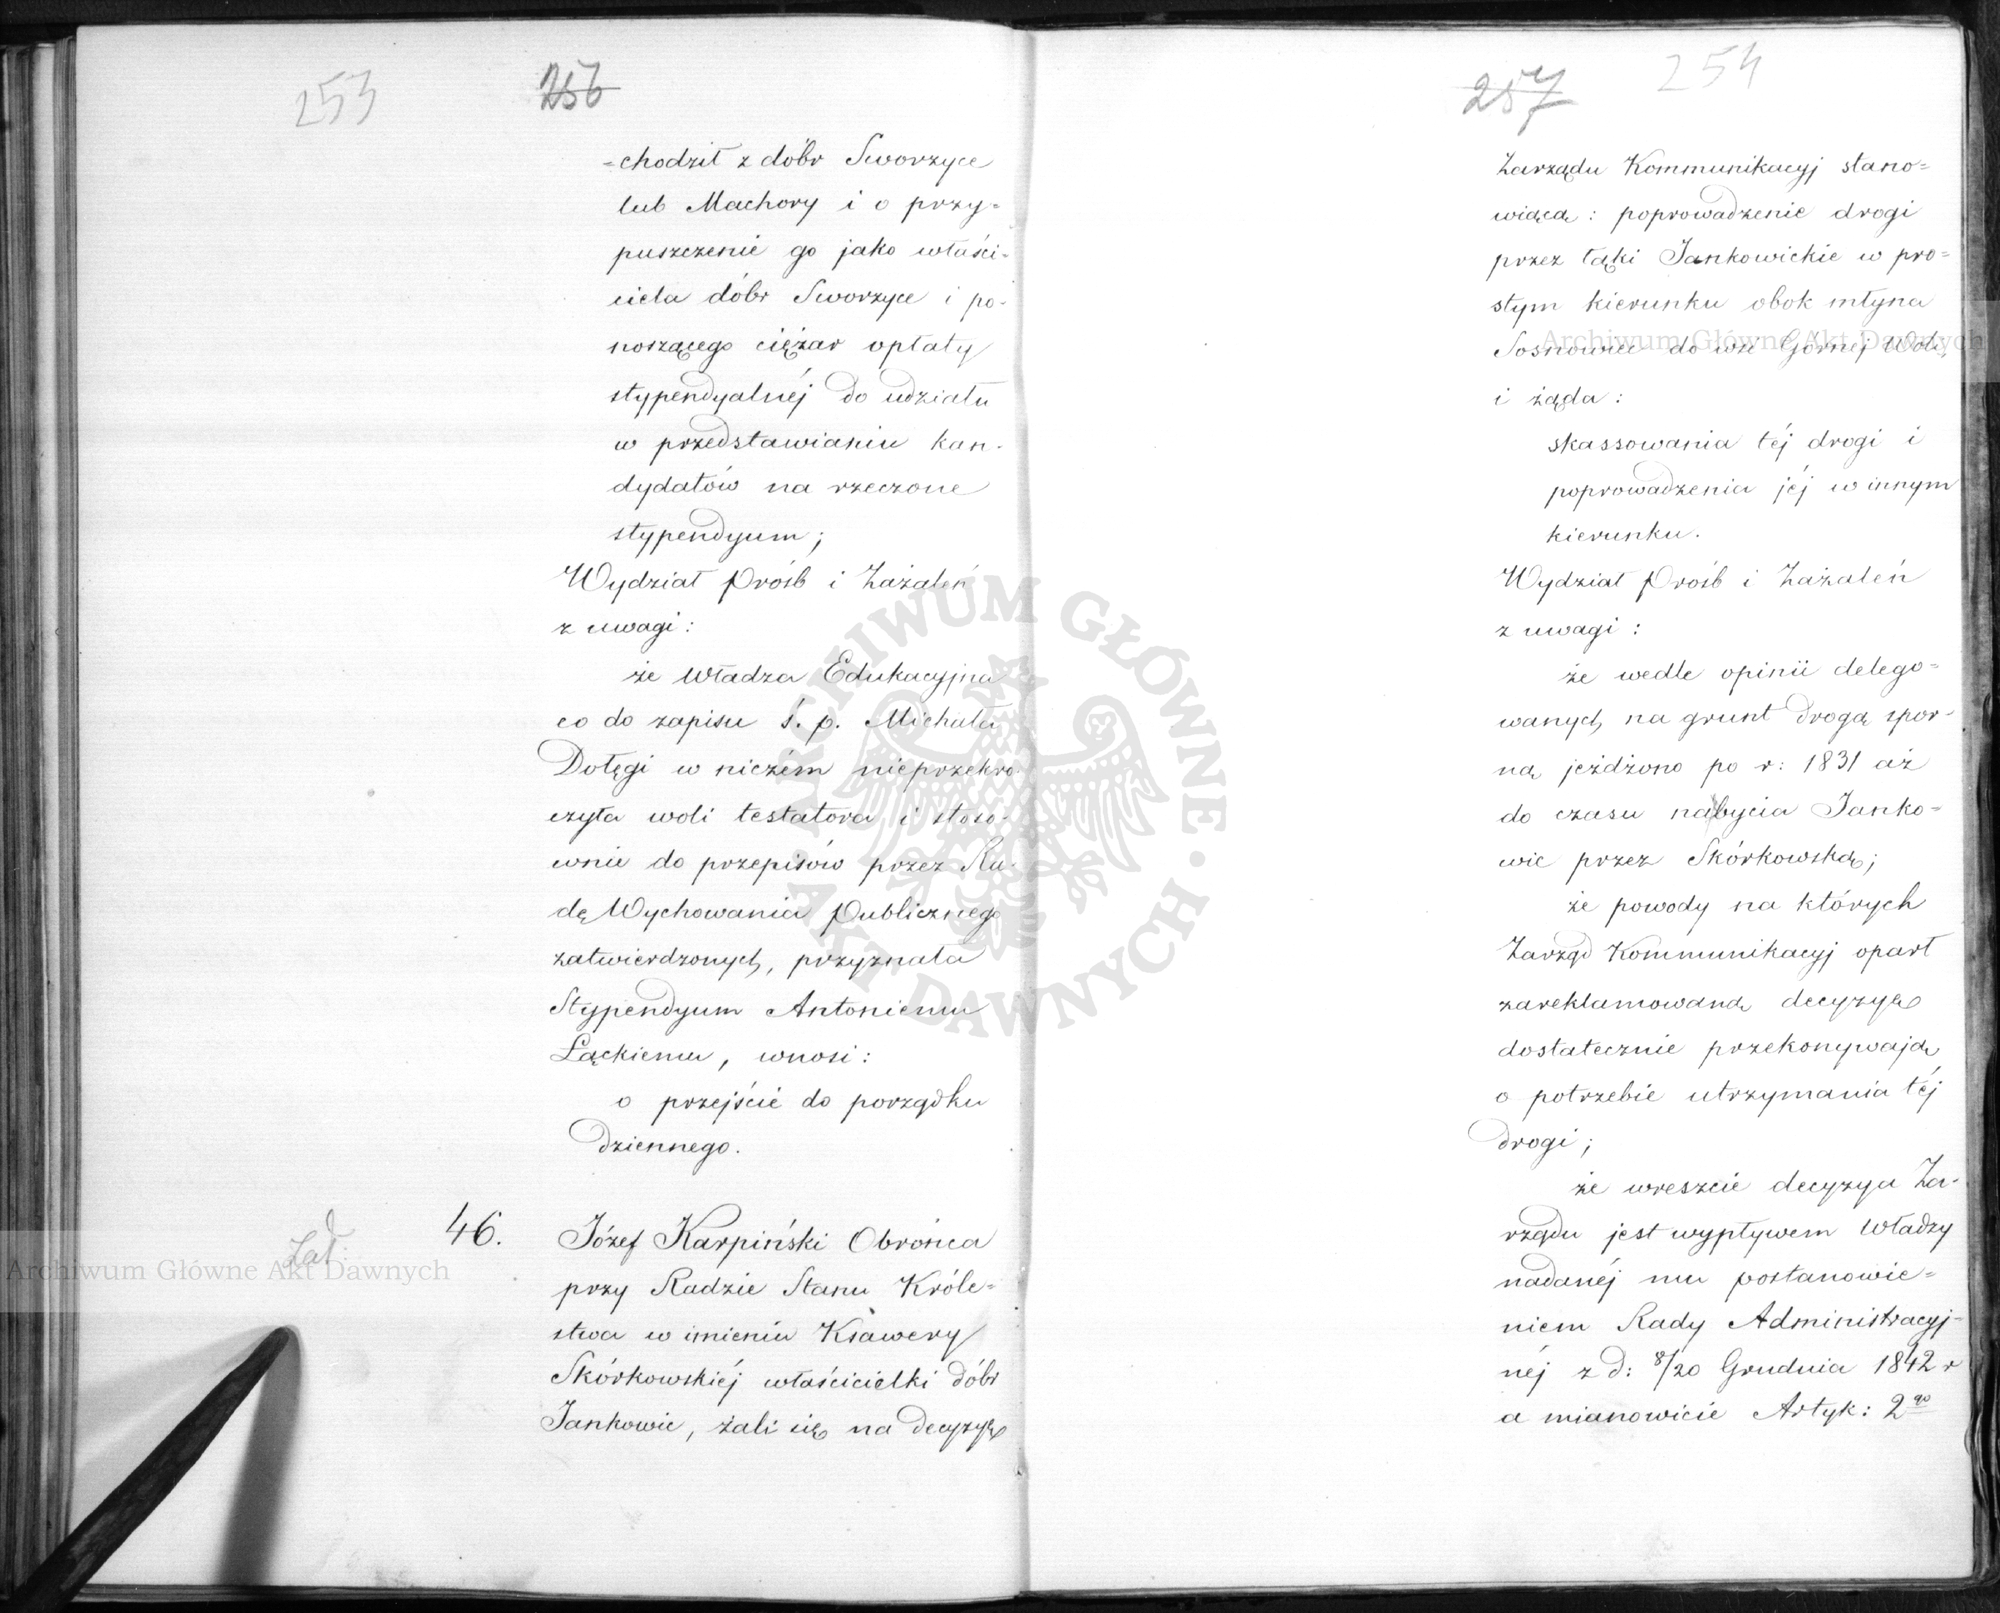 253
256
=chodził z dóbr Sworzyce
lub Machory i o przy=
puszczenie go jako właści=
ciela dóbr Sworzyce i po=
noszącego ciężar opłaty
stypendyalnéj do udziału
w przedstawianiu kan=
dydatów na rzeczone
stypendyum;
Wydział Próśb i Zażaleń
z uwagi:
że Władza Edukacyjna
co do zapisu ś. p. Michała
Dołęgi w niczém nieprzekro=
czyła woli testatora i stoso=
wnie do przepisów przez Ra=
dę Wychowania Publicznego
zatwierdzonych, przyznała
Stypendyum Antoniemu
Łąckiemu, wnosi:
o przejście do porządku
dziennego.
46.
Józef Karpiński Obrońca
przy Radzie Stanu Króle=
stwa w imieniu Ksawery
Skórkowskiéj właścicielki dóbr
Jankowic, żali się na decyzyę
257
254
Zarządu Kommunikacyj stano=
wiącą: poprowadzenie drogi
przez łąki Jankowickie w pro=
stym kierunku obok młyna
Sosnowiec do wsi Górnej Woli,
i żąda:
skassowania téj drogi i
poprowadzenia jéj w innym
kierunku.
Wydział Próśb i Zażaleń
z uwagi:
że wedle opinii delego=
wanych na grunt drogą spor=
ną jeżdżono po r: 1831 aż
do czasu nabycia Janko=
wic przez Skórkowską;
że powody na których
Zarząd Kommunikacyj oparł
zareklamowaną decyzyę
dostatecznie przekonywają
o potrzebie utrzymania téj
drogi;
że wreszcie decyzya Za=
rządu jest wypływem Władzy
nadanéj mu postanowie=
niem Rady Administracyj=
néj z d: 8/20 Grudnia 1842 r
a mianowicie Artyk: 2go
ARCHIWUM GŁÓWNE
AKT DAWNYCH
Archiwum Główne Akt Dawnych
Archiwum Główne Akt Dawnych